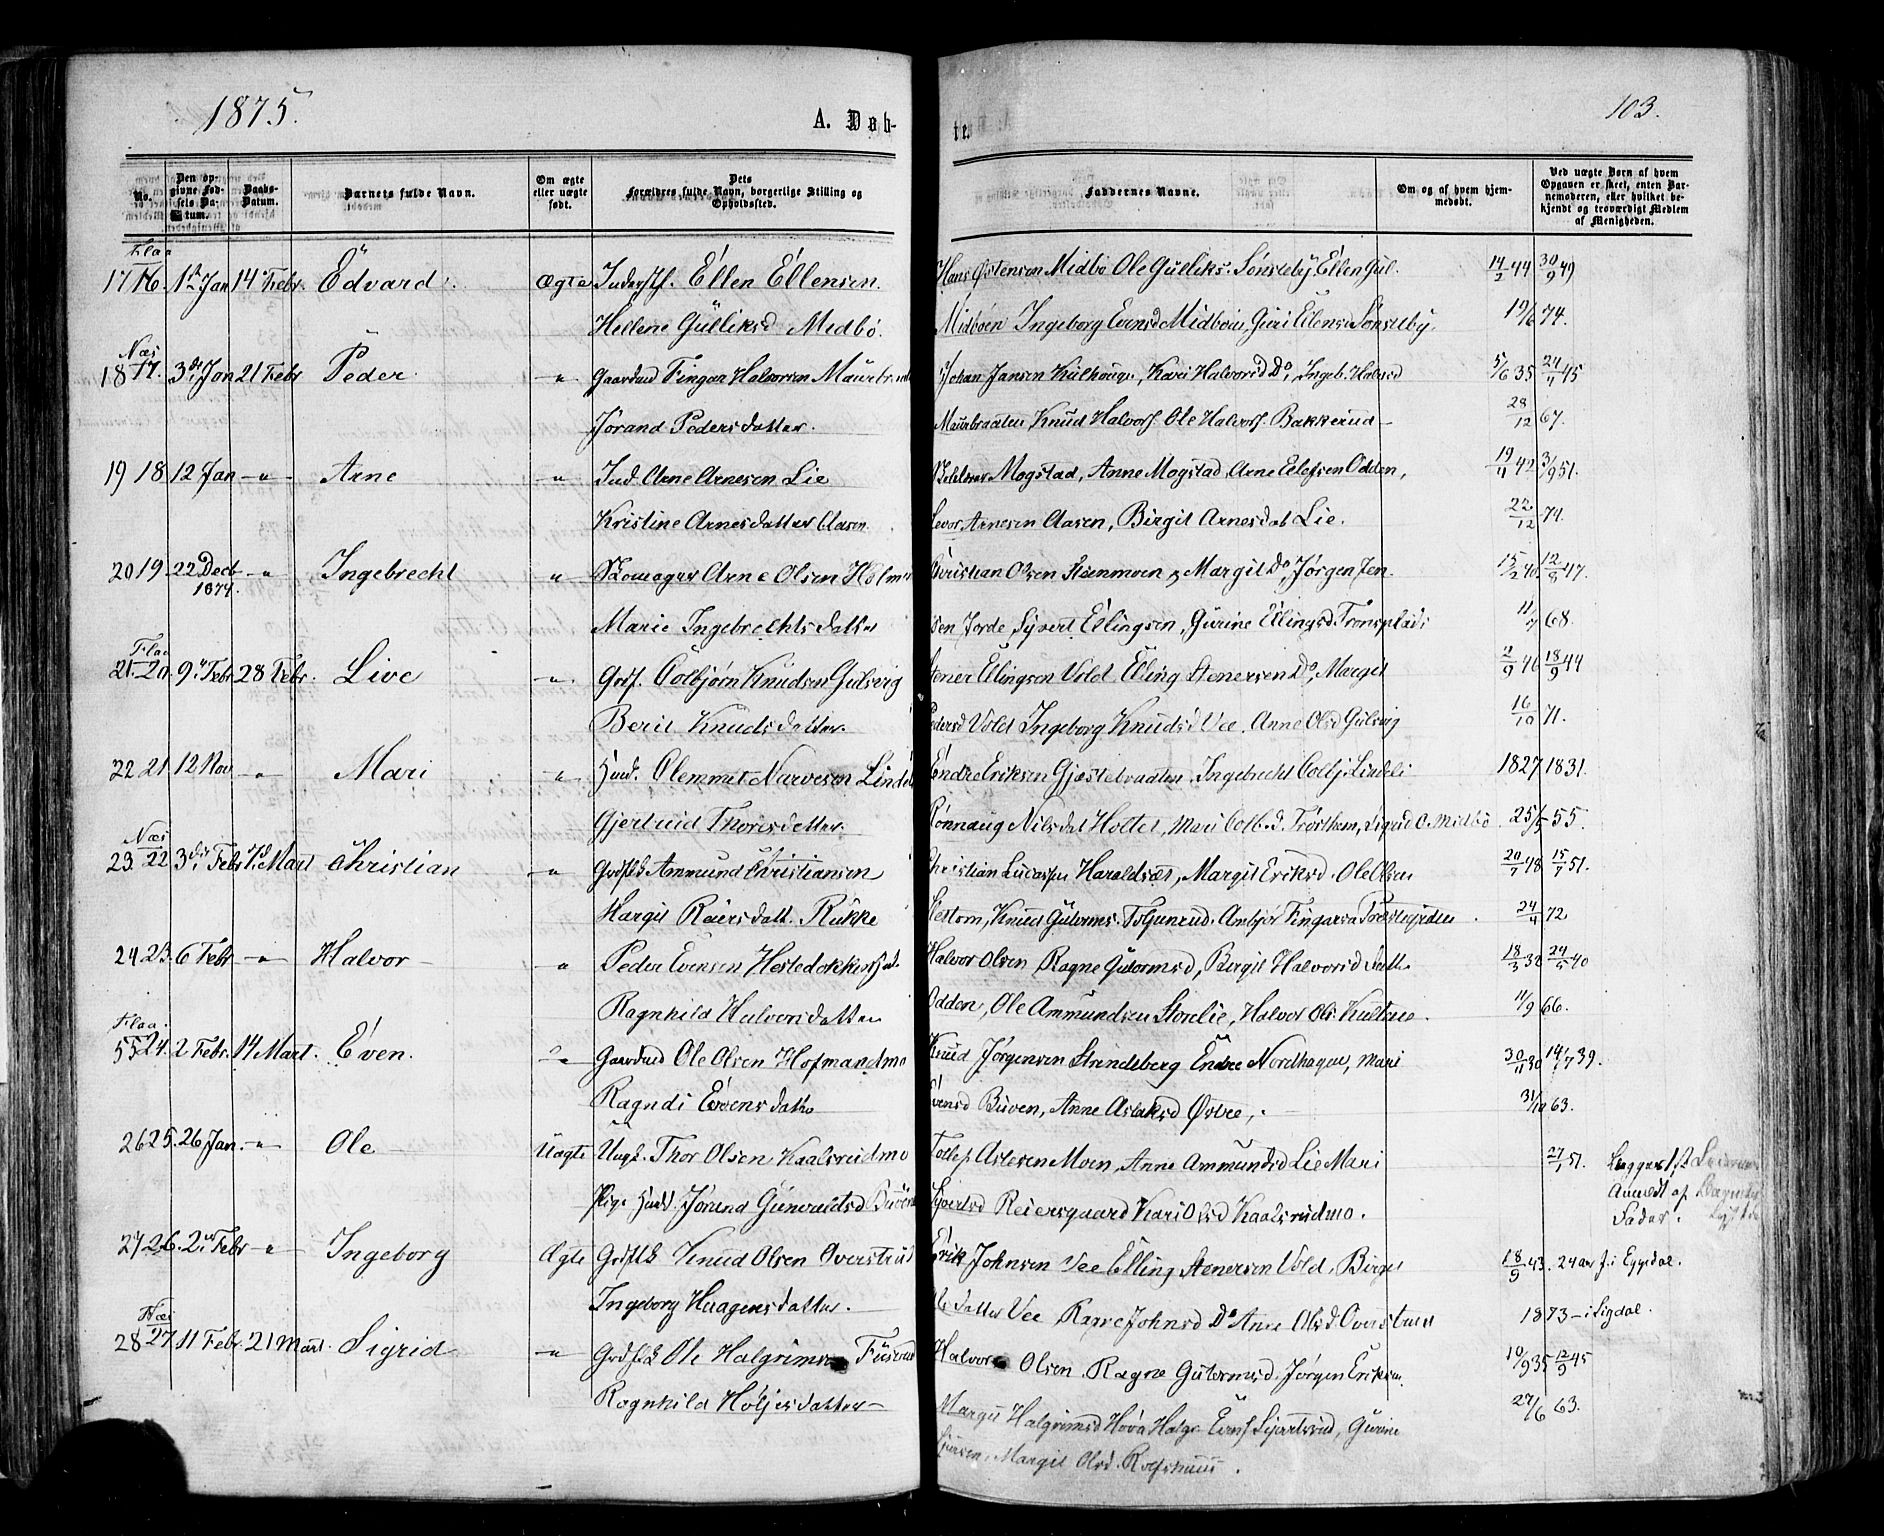 1875.
A. Døb-
te.
103.
No.
Den op-
givne Fød-
sels Da-
tum.
Daabs-
Datum.
Barnets fulde Navn.
Om ægte
eller uægte
født.
Dets
Forældres fulde Navn, borgerlige Stilling og
Opholdssted.
Faddernes Navne.
Om og af hvem hjem-
medøbt.
Ved uægte Børn af hvem
Opgaven er skeet, enten Bar-
nemoderen, eller hvilket be-
kjendt og troværdigt Medlem
af Menigheden.
Flaa
17 16. 1ste Jan 14 Febr. Edvard. Ægte Inderst. Ellen Ellensen. Hans Østensen Midbø Ole Gulliks. Sønsteby, Ellen Gul. 14/2 44 30/9 49
Hellene Gulliksd Midbø. Midbøen Ingeborg Evensd Midbøen, Guri Ellensd Sønsteby. 19/6 74.
Næs
18 17. 3die Jan 21 Febr Peder. " Gaardmd Fingar Halvorsen Maurbraaten Johan Jansen Kulhouge, Kari Halvorsd Do, Ingeb. Halvsd 5/6 35 24/4 45
Jørand Pedersdatter. Maurbraaten, Knud Halvors. Ole Halvors. Bakkerud 28/12 67.
19 18. 12 Jan " Arne " Ind. Arne Arnesen Lie Mogstad, Anne Mogstad, Arne Ellefsen Odden, 19/4 42 3/9 51.
Kristine Arnesdatter Aasen. Levor Arnesen Aasen, Birgit Arnesdat Lie. 22/12 74.
20 19. 22 Dect " Ingebrecht " Skomager Arne Olsen Holmen Christian Olsen Steenmoen, Margit Do, Jørgen Jen 15/2 40 12/8 47.
1874.
Marie Ingebrechtsdatter sen Jorde, Syvert Ellingsen, Gurine Ellingsd Trønsplads 11/7 68.
Flaa
21. 20. 9de Febr 28 Febr. Live " Grdf. Colbjørn Knudsen Gulsvig Stener Ellingsen Vold Elling Stenersen Do, Margit 2/9 46 18/9 44
Berit Knudsdatter. Pedersd Vold, Ingeborg Knudsd Vee, Anne Olsd Gulsvig 16/10 71.
22 21. 12 Nov " Mari " Husf. Olemmet Narvesen Lindeli Endre Eriksen Gjestebraaten, Ingebrecht Colbj. Lindeli 1827 1831.
Gjertrud Thorisdatter. Rønnaug Nilsdat Hottel, Mari Colb.d. Trøsthem, Sigrid O. Midbø. 25/5 55.
Næs
23. 22. 3die Febr 7de Mart Christian " Grdf. Ammund Christiansen Christian Lucassen Haraldset, Margit Eriksd. Ole Olsen 20/7 48 15/7 51.
Margit Reiersdatt. Rukke 24/4 72
24 23. 6 Febr " Halvor " Peder Evensen Halvor Olsen Ragne Gutormsd, Birgit Halvorsd 18/3 32 24/5 40
Ragnhild Halvorsdatter Odden, Ole Ammundsen Storelie, Halvor Ols. 11/9 66.
Flaa.
55 24. 2 Febr. 14 Mart. Even. " Gaardmd Ole Olsen Hofmandmo Knud Jørgensen Strandeberg Endre Nordhagen, Mari 30/11 30 14/7 39.
Ragndi Evensdatter Evensd Buven, Anne Aslaksd Østre, 31/10 63.
26 25. 26 Jan. " Ole Uægte Ungk. Thor Olsen Kaalsrudmo Tollef Aslesen Moen, Anne Ammundsd Lie Mari 27/1 51. Anmeldt af
Pige Jørund Gunvaldsd Syvertsd Reiersgaard Kari Olsd Kaalsrudmo. Fader.
27 26. 2den Febr " Ingeborg Ægte Grdf. Knud Olsen Øverstrud Erik Johnsen Vee Elling Stenersen Vold, Birgit 18/9 43. 24 aar f. i Eggedal.
Ingeborg Haagensdatter. Olsdatter Vee Ragne Johnsd Do Anne Olsd Øverstrud 1873 i Sigdal.
Næs
28 27. 11 Febr. 21 Mart. Sigrid " Grdf. Ole Halgrimsen Halvor Olsen. Ragne Gutormsd, Jørgen Eriksen 10/9 35 12/9 45
Ragnhild Holjesdatter Margit Halgrimsd Hova Halgr. Gurine 27/6 63.
Margit Olsd. Rolfshuus.